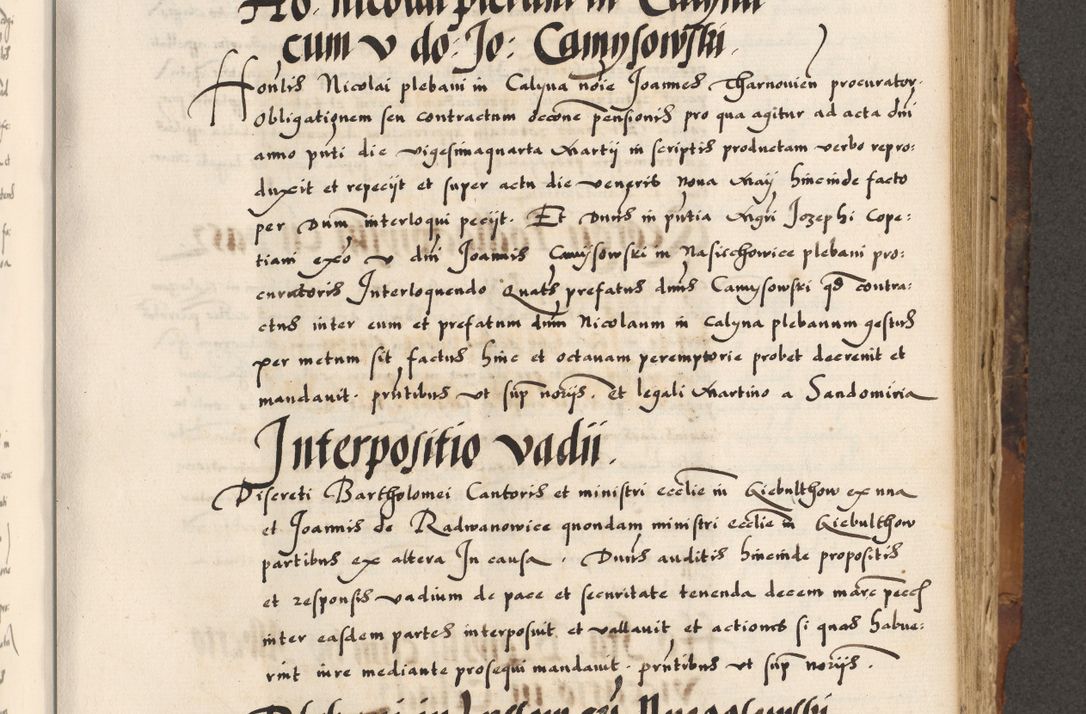 cum v do: Jo: Camysowski.
Honlis Nicolai plebani in Calyna noie Joannes Tharnovien procurator
obligationem seu contractum occone pensionis pro qua agitur ad acta dni
anno pnti die vigesimaquarta Martij in scriptis productam verbo repro:
duxit et repecijt et super actu die veneris nona Maij hincinde facto
per Dnum interloqui pecijt. Et Duns in pntia Mgri Jozephi Cope:
tiani exo v dni Joannis Camysowski in Nasiechowice plebani pro:
curatoris Interloquendo Quats prefatus dnus Camysowski qd contra:
ctus inter eum et prefatum dnm Nicolaum in Calyna plebanum gestus
per metum sit factus hinc et octavam peremptorie probet decrevit et
mandavit. pntibus vt sup norijs. et legali Martino a Sandomiria
Interpositio vadii.
Discreti Bartholomei Cantoris et ministri ecclie in Giebulthow ex una
et Joannis de Radwanowice quondam ministri ecclie in Giebulthow
partibus ex altera In causa. Duns auditis hincinde propositis
et responsis vadium de pace et securitate tenenda decem marc pecc
inter easdem partes interposuit et vallavit et actiones si quas habue:
rint iure mediante prosequi mandavit. pntibus vt sup norijs.